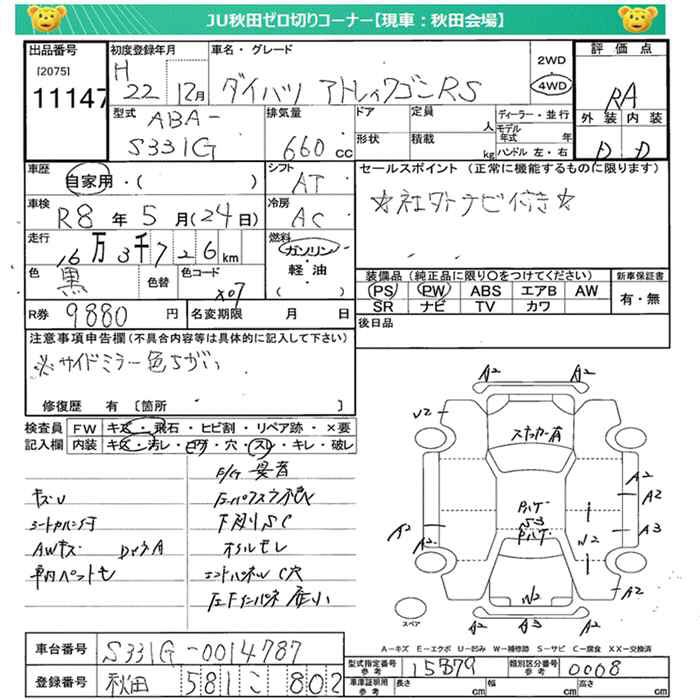 JU秋田ゼロ切りコーナー【現車：秋田会場】
出品番号
[2075]
11147
初度登録年月
H
22 12月
車名・グレード
ダイハツ アトレイワゴンRS
2WD
・
4WD
評価点
RA
外装 内装
D D
型式
ABA-
S331G
排気量
660 cc
ドア
形状
定員
人
積載
kg
ディーラー・並行
モデル年式 年
ハンドル 左・右
車歴
自家用・( )
シフト
AT
セールスポイント（正常に機能するものに限ります）
☆社外ナビ付き☆
車検
R8 年 5 月(24日)
冷房
AC
走行
16万3千726km
燃料
ガソリン・
軽・油
( )
色
黒
色替
色コード
X07
装備品（純正品に限り〇をつけてください）
PS PW ABS エアB AW
SR ナビ TV カワ
新車保証書
有・無
R券
9880 円
名変期限 月 日
後日品
注意事項申告欄(不具合内容等は具体的に記入して下さい)
※サイドミラー色ちがい
修復歴 有〔箇所 〕
検査員
記入欄
FW キズ・飛石・ヒビ割・リペア跡・×要
内装 キズ・汚レ・コゲ・穴・スレ・キレ・破レ
F/G 異音
キズU
下廻りSC
シートカバー付
オイルモレ
AWキズ
エンドパネルC穴
A2 A2
U2
ステッカー有
A2
A2
A2 A2
A3
W2
W2
A2
A2 A2
スペア
A－キズ E－エクボ U－凹み W－補修跡 S－サビ C－腐食 XX－交換済
車台番号
S331G-0014787
登録番号
秋田 581 こ 802
型式指定番号
参考
15879
類別区分番号
参考
0008
車庫証明用
参考
長さ cm
幅 cm
高さ cm